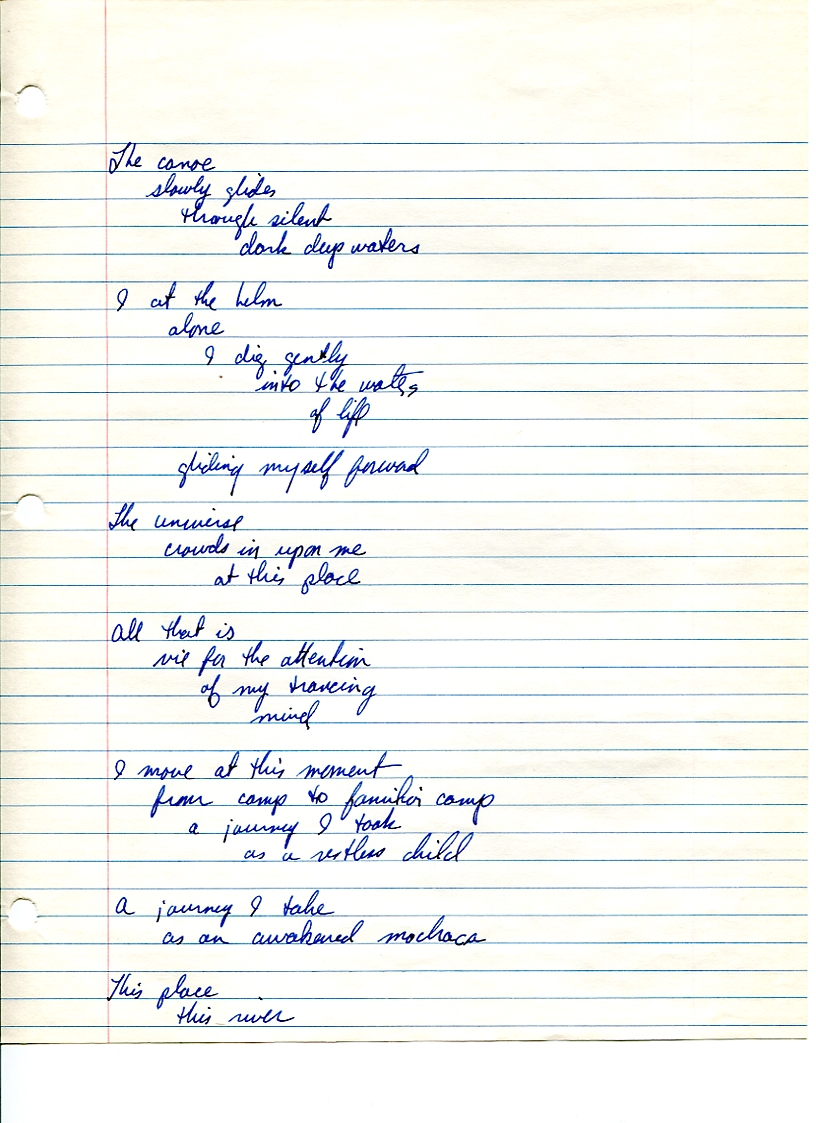 The canoe
slowly glides
through silent
dark deep waters
I at the helm
alone
I dig gently
into the waters
of life
gliding myself forward
The universe
crowds in upon me
at this place
All that is
vie for the attention
of my trancing
mind
I move at this moment
from camp to familiar camp
a journey I took
as a restless child
A journey I take
as an awakened
This place
this river